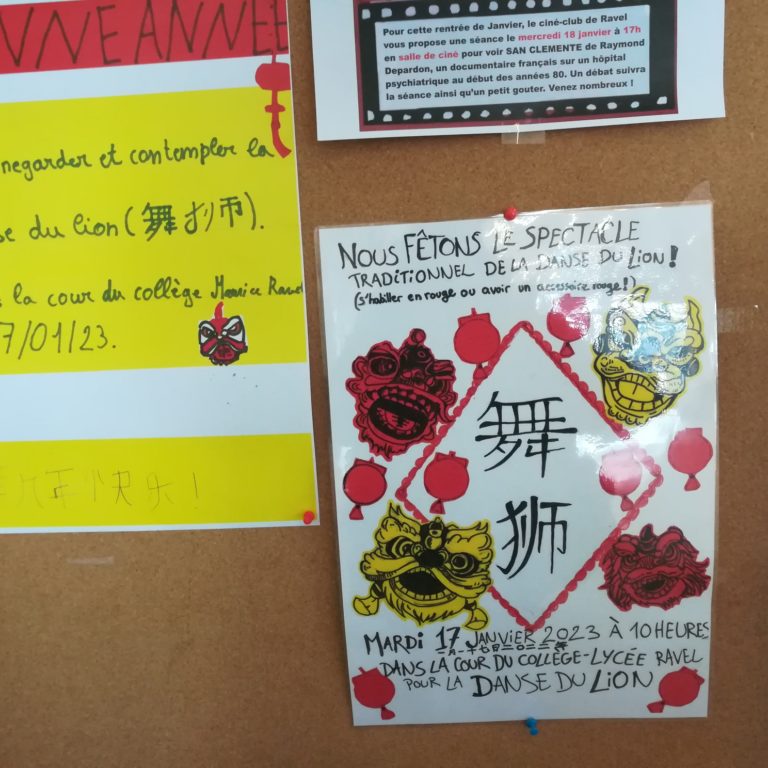 NNE ANNÉE
regarder et contempler la
se du lion (舞狮).
la cour du collège Maurice Ravel
7/01/23.
年快乐!
Pour cette rentrée de Janvier, le ciné-club de Ravel
vous propose une séance le mercredi 18 janvier à 17h
en salle de ciné pour voir SAN CLEMENTE de Raymond
Depardon, un documentaire français sur un hôpital
psychiatrique au début des années 80. Un débat suivra
la séance ainsi qu'un petit gouter. Venez nombreux !
NOUS FÊTONS LE SPECTACLE
TRADITIONNEL DE LA DANSE DU LION !
(s'habiller en rouge ou avoir un accessoire rouge !)
舞
狮
MARDI 17 JANVIER 2023 À 10 HEURES
DANS LA COUR DU COLLÈGE-LYCÉE RAVEL
POUR LA DANSE DU LION